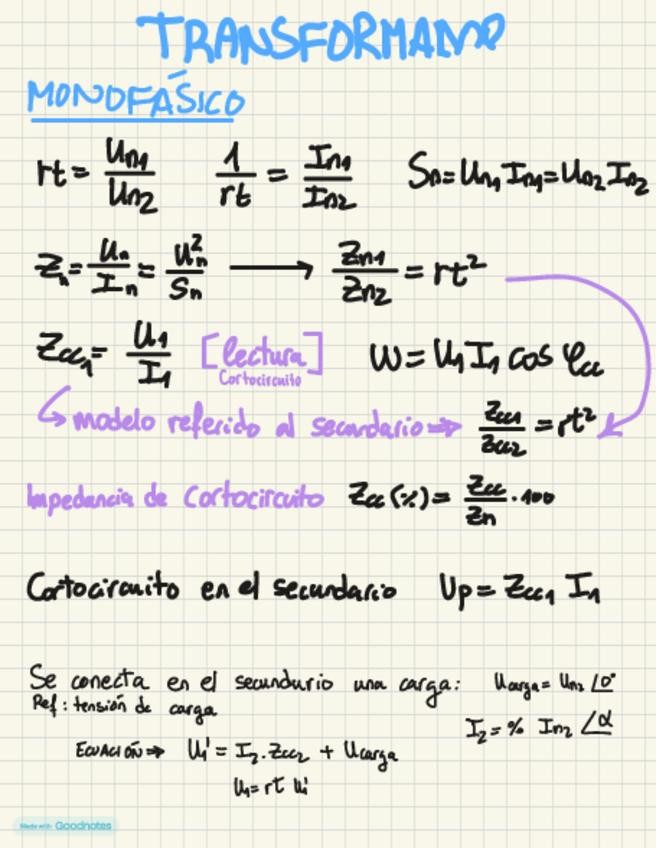 TRANSFORMADOR
MONOFÁSICO
rt = Un1/Un2   1/rt = In1/In2   Sn = Un1 In1 = Un2 In2
Zn = Un/In = Un²/Sn → Zn1/Zn2 = rt²
Zcc1 = U1/I1 [lectura]   W = U1 I1 cos φcc
Cortocircuito
↳ modelo referido al secundario ⇒ Zcc1/Zcc2 = rt²
Impedancia de Cortocircuito Zcc (%) = Zcc/Zn · 100
Cortocircuito en el secundario   Up = Zcc1 I1
Se conecta en el secundario una carga:   Ucarga = Un2 ∠0°
Ref: tensión de carga
I2 = % In2 ∠α
ECUACIÓN ⇒ U1' = I2 · Zcc2 + Ucarga
U1 = rt U1'
Made with Goodnotes